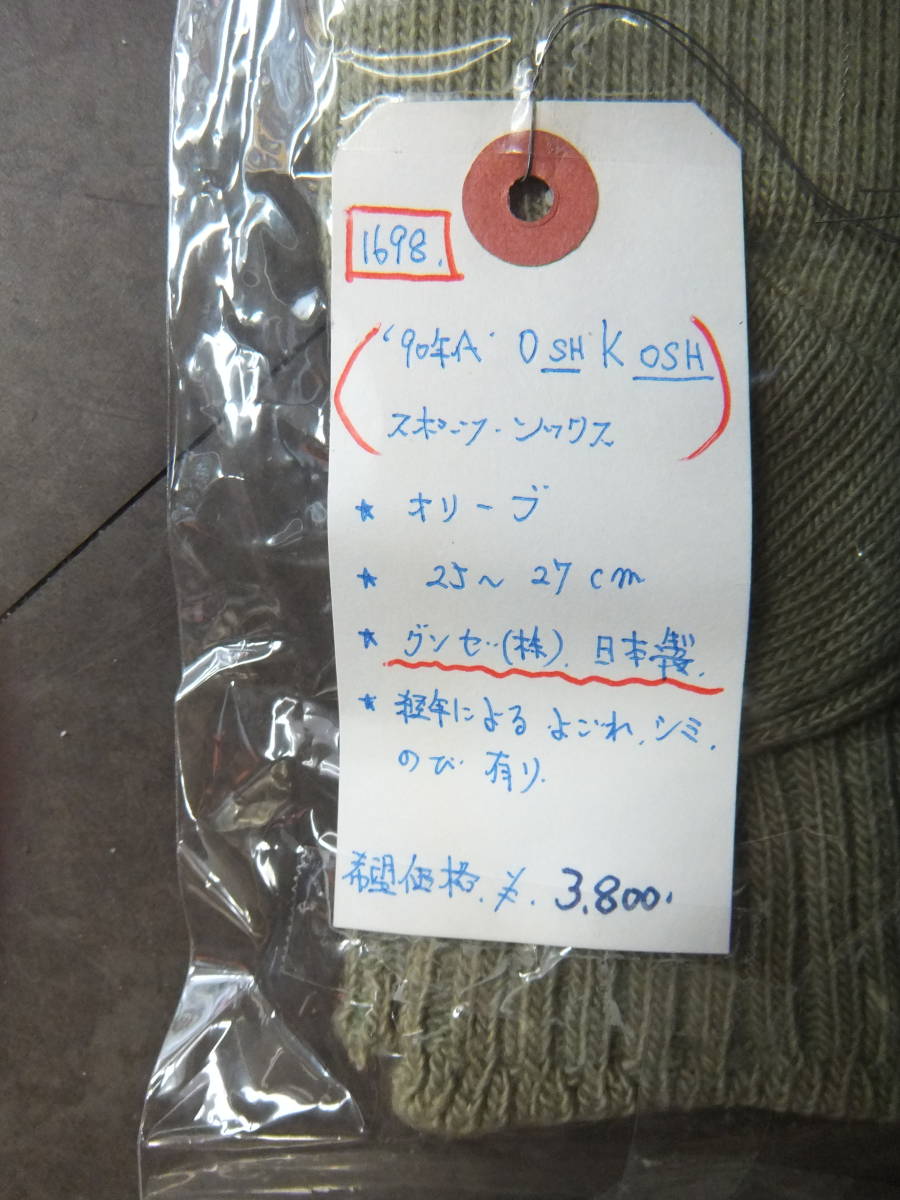 1698.
'90年代 OSH KOSH
スポーツ・ソックス
★ オリーブ
★ 25～27cm
★ グンゼ(株). 日本製.
★ 経年による よごれ、シミ、
のび 有り.
希望価格. ¥. 3,800.